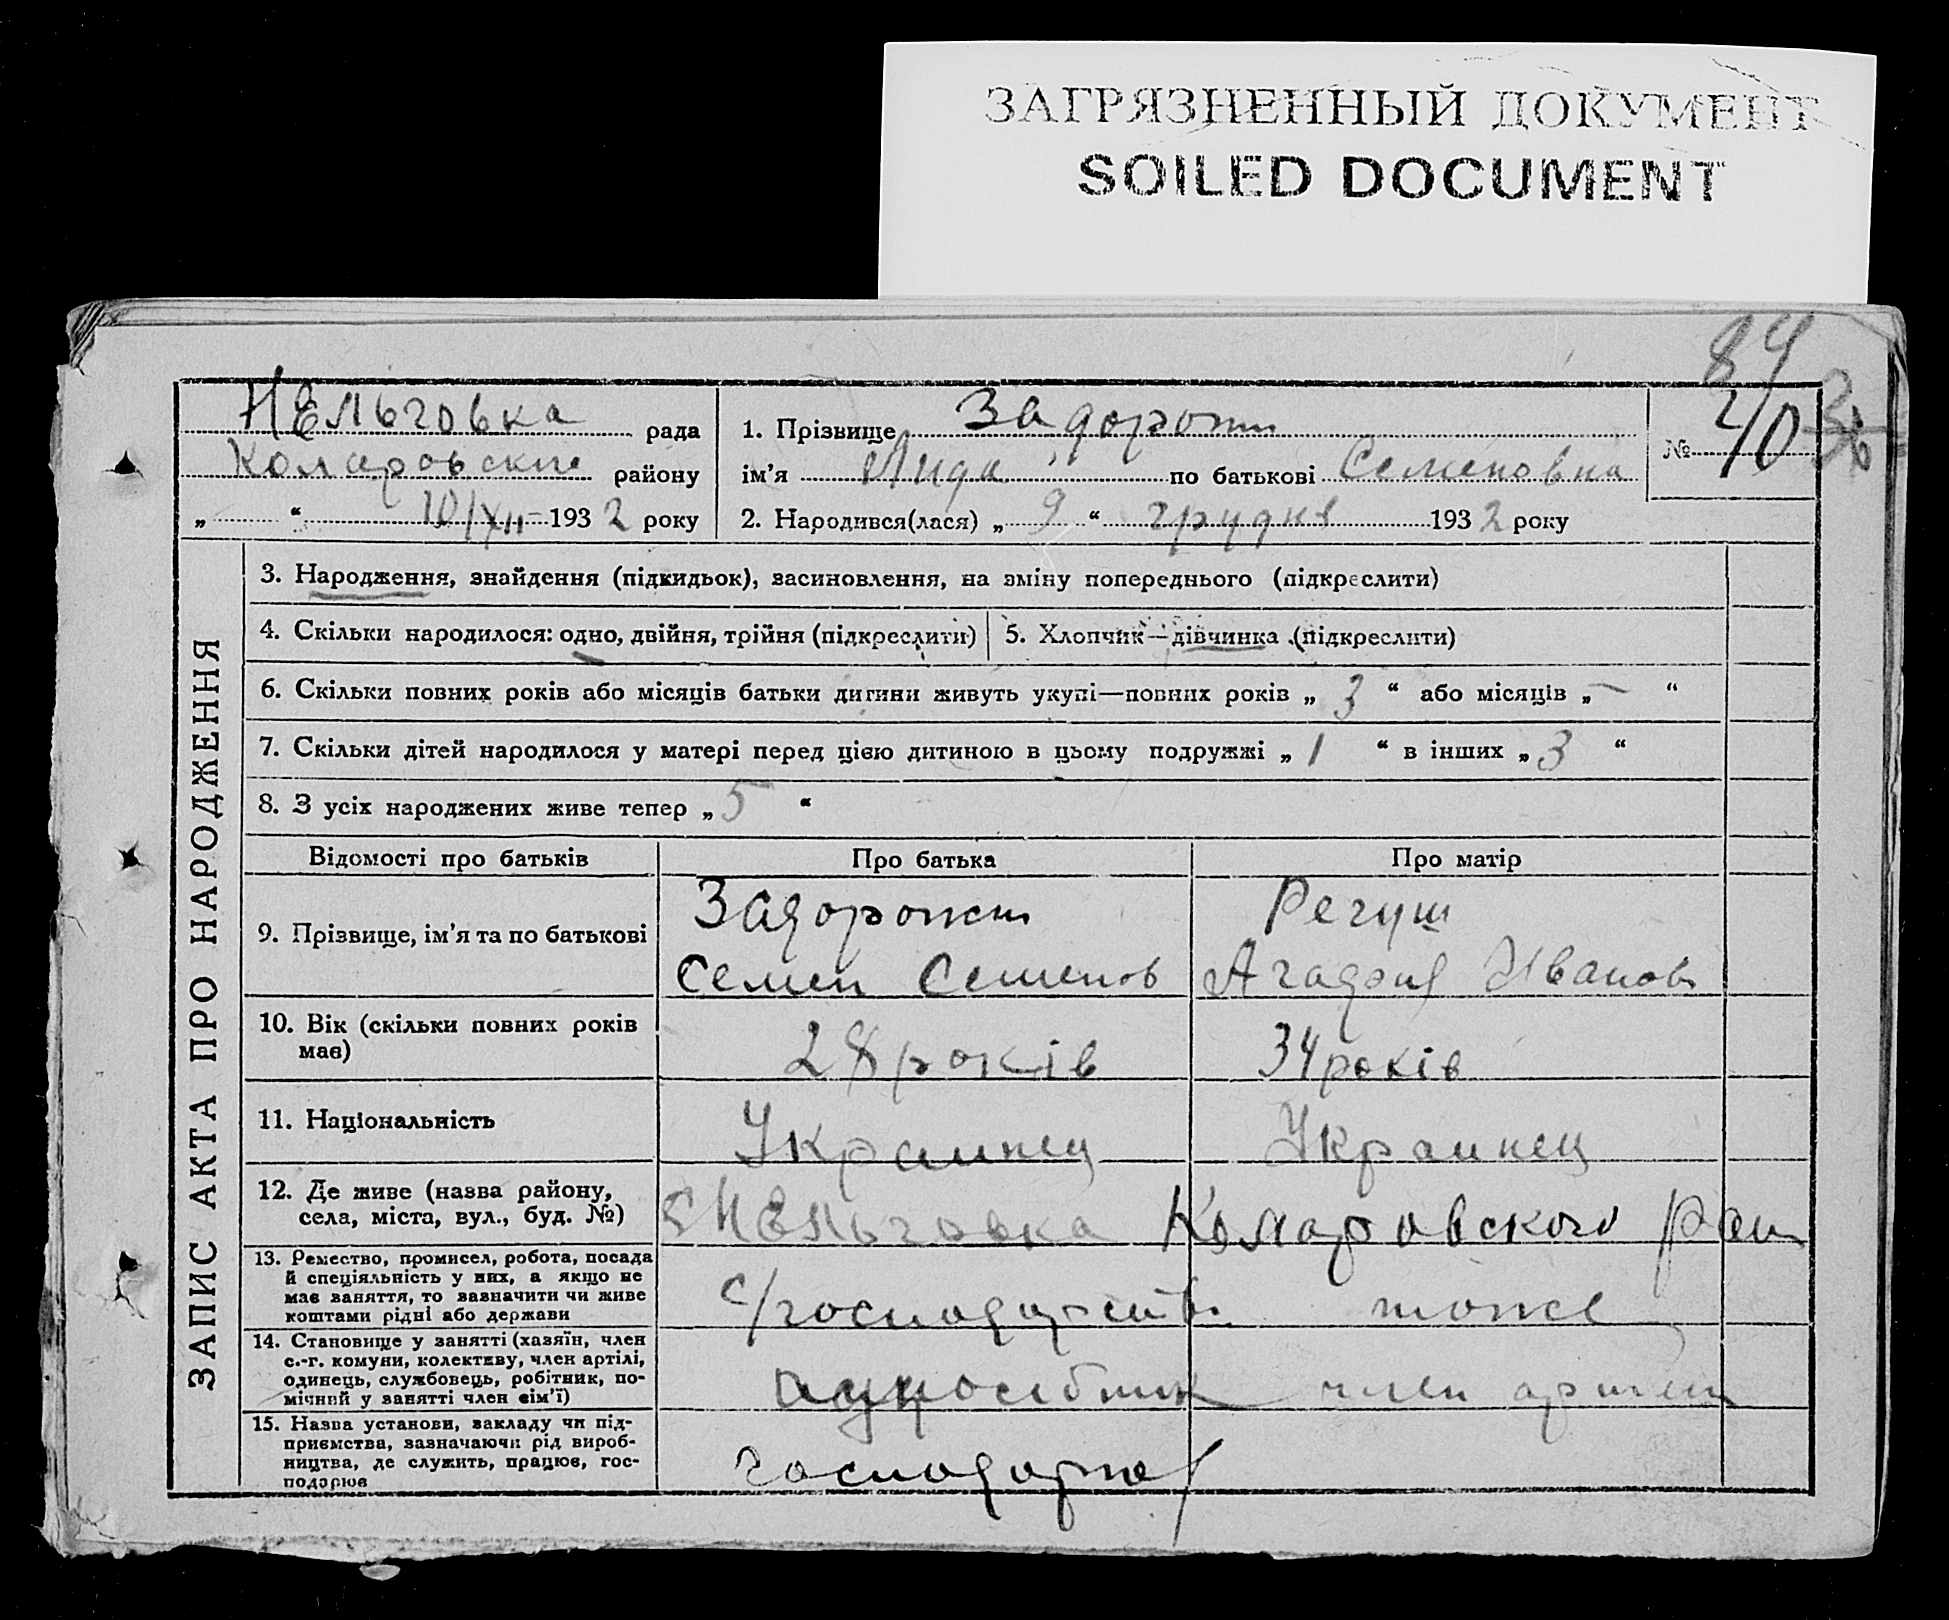 ЗАГРЯЗНЕННЫЙ ДОКУМЕНТ
SOILED DOCUMENT
84
Нельговка рада
Комаровский району
„ “ 10/XII 1932 року
1. Прізвище Задорожн
ім’я Лида по батькові Семеновна
2. Народився(лася) „ 9 “ грудня 1932 року
№ 40 36
ЗАПИС АКТА ПРО НАРОДЖЕННЯ
3. Народження, знайдення (підкидьок), засиновлення, на зміну попереднього (підкреслити)
4. Скільки народилося: одно, двійня, трійня (підкреслити)
5. Хлопчик—дівчинка (підкреслити)
6. Скільки повних років або місяців батьки дитини живуть укупі—повних років „ 3 “ або місяців „ – “
7. Скільки дітей народилося у матері перед цією дитиною в цьому подружжі „ 1 “ в інших „ 3 “
8. З усіх народжених живе тепер „ 5 “
Відомості про батьків
Про батька
Про матір
9. Прізвище, ім’я та по батькові
Задорожн
Семен Семенов
Регуш
Агафия Иванов
10. Вік (скільки повних років
має)
28 років
34 років
11. Національність
Украинец
Украинец
12. Де живе (назва району,
села, міста, вул., буд. №)
с Нельговка Комаровского Рай
13. Ремество, промисел, робота, посада
й спеціяльність у них, а якщо не
має заняття, то зазначити чи живе
коштами рідні або держави
с/господарств
тоже
14. Становище у занятті (хазяїн, член
с.-г. комуни, колективу, член артілі,
одинець, службовець, робітник, по-
мічний у занятті член сім’ї)
одноосібник
член артели
15. Назва установи, закладу чи під-
приємства, зазначаючи рід вироб-
ництва, де служить, працює, гос-
подарює
господарює